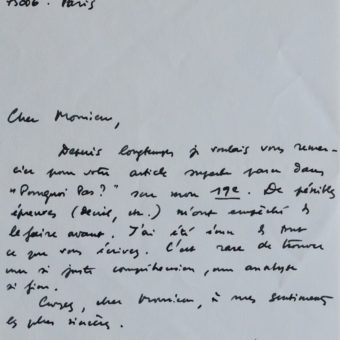 75006. Paris
Cher Monsieur,
Depuis longtemps je voulais vous remer-
cier pour votre article paru dans
"Pourquoi Pas?" sur mon 19e. De pénibles
épreuves (deuil, etc.) m'ont empêché de
le faire avant. J'ai été ému de tout
ce que vous écrivez. C'est rare de trouver
une si juste compréhension, une analyse
si fine.
Croyez, cher Monsieur, à mes sentiments
les plus sincères.